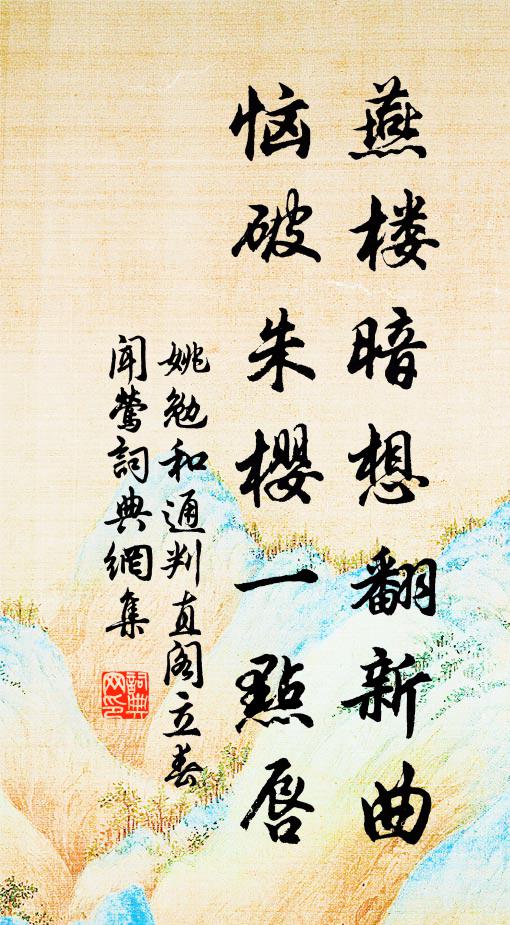 燕楼暗想翻新曲
恼破朱樱一點唇
姚勉和通判直阁立春
闻莺詞典網集
詞典网印